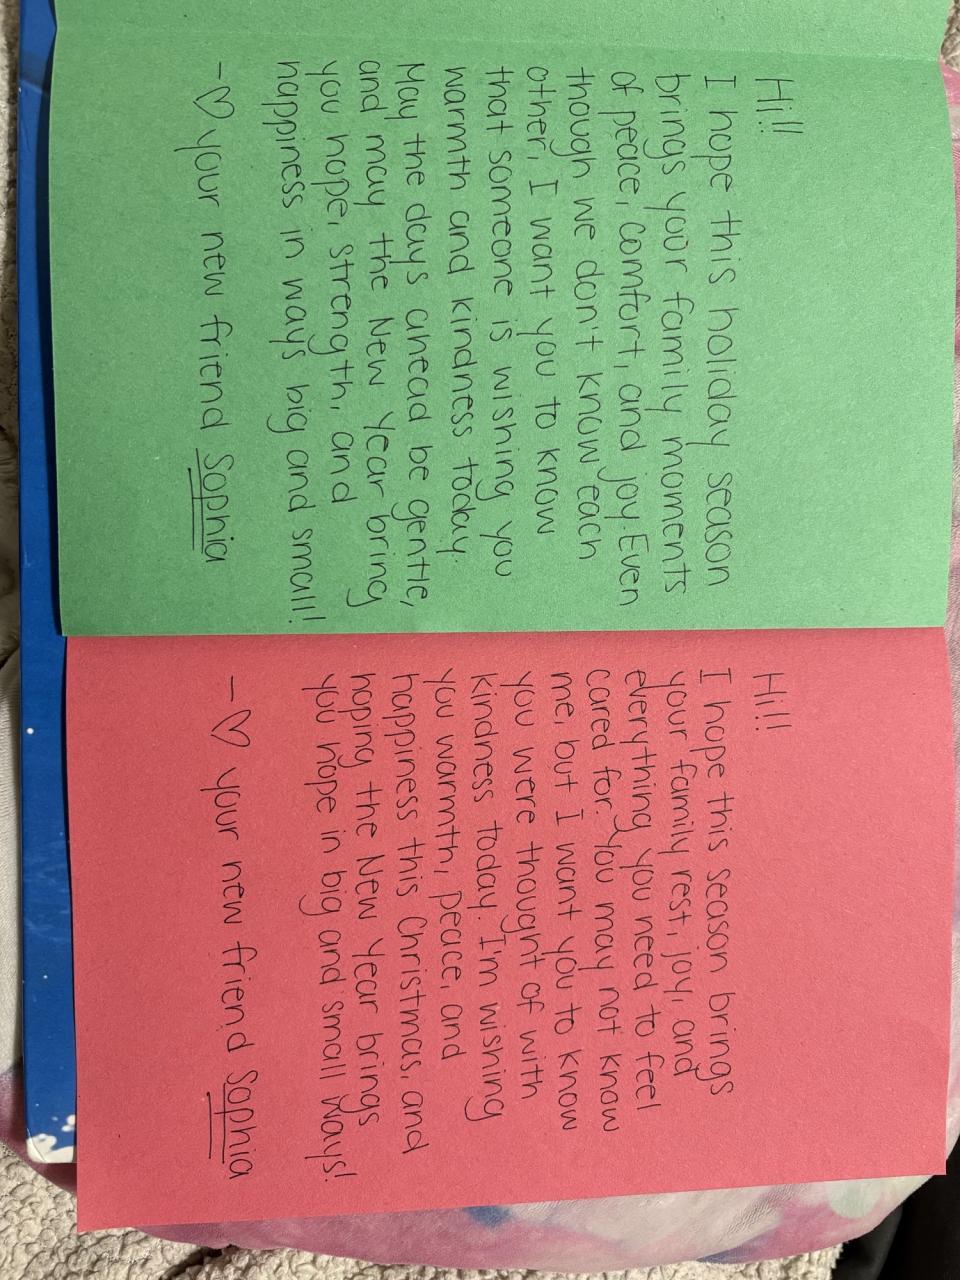 Hi!!
I hope this holiday season
brings your family moments
of peace, comfort, and joy. Even
though we don't know each
other, I want you to know
that someone is wishing you
warmth and kindness today.
May the days ahead be gentle,
and may the New Year bring
you hope, strength, and
happiness in ways big and small!
-♡ your new friend Sophia
Hi!!
I hope this season brings
your family rest, joy, and
everything you need to feel
cared for. You may not know
me, but I want you to know
you were thought of with
kindness today. I'm wishing
you warmth, peace, and
happiness this Christmas, and
hoping the New Year brings
you hope in big and small ways!
-♡ your new friend Sophia